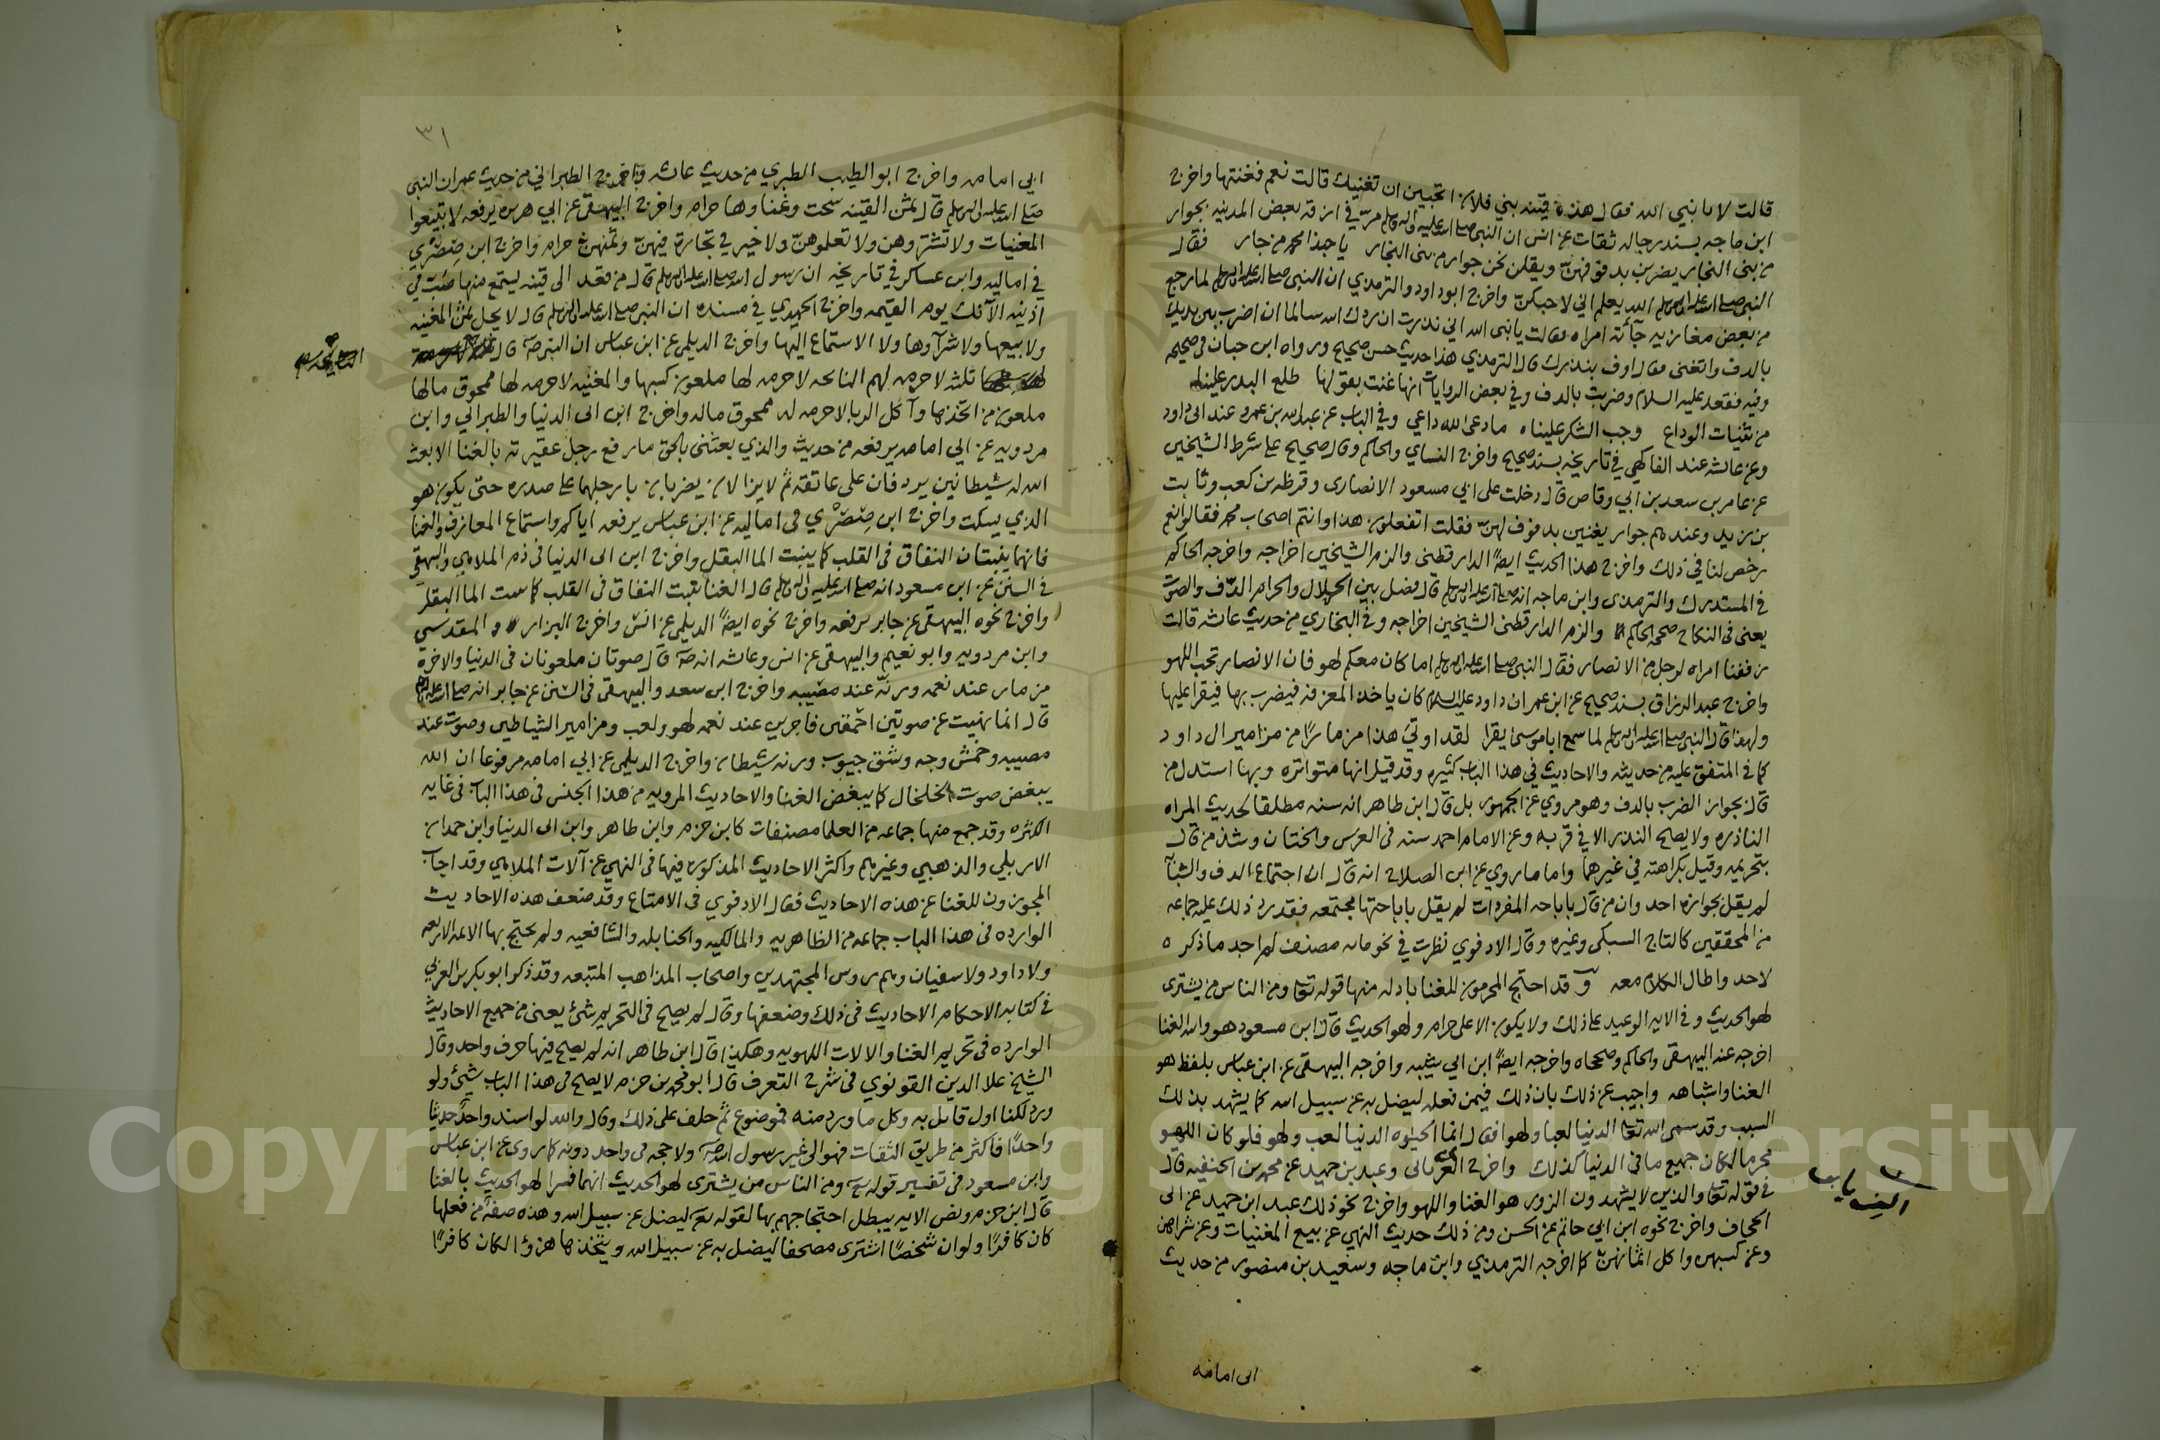 قالت لا يا نبي الله فقال هذه قينه بني فلان اتحبين ان تغنيك قالت نعم فغنتها واخرج
ابن ماجه بسند رجاله ثقات عن انس ان النبي صلى الله عليه واله وسلم مر في ازقة بعض المدينه بجوار
من بني النجار يضربن بدفوفهن ويقلن نحن جوار من بني النجار يا حبذا محمد من جار فقال
النبي صلى الله عليه واله وسلم الله يعلم اني لاحبكن واخرج ابو داود والترمذي ان النبي صلى الله عليه واله وسلم لما رجع
من بعض مغازيه جأته امراه فقالت يا نبي الله اني نذرت ان ردك الله سالما ان اضرب بين يديك
بالدف واتغنى فقال اوف بنذرك قال الترمذي هذا حديث حسن صحيح ورواه ابن حبان في صحيحه
وفيه فقعد عليه السلام وضربت بالدف وفي بعض الروايات انها غنت بقولها طلع البدر علينا
من ثنيات الوداع وجب الشكر علينا ما دعى لله داعي وفي الباب عن عبد الله بن عمرو عند ابي داود
وعن عائشه عند الفاكهي في تاريخه بسند صحيح واخرج النساي والحاكم وقال صحيح على شرط الشيخين
عن عامر بن سعد بن ابي وقاص قال دخلت على ابي مسعود الانصارى وقرظه بن كعب وثابت
بن زيد وعندهم جوار يغنين بدفوف لهن فقلت اتفعلون هذا وانتم اصحاب محمد فقالوا نعم
رخص لنا في ذلك واخرج هذا الحديث ايضا الدارقطني والزم الشيخين اخراجه واخرجه الحاكم
في المستدرك والترمذي وابن ماجه انه صلى الله عليه واله وسلم قال فصل بين الحلال والحرام الدف والصوت
يعني في النكاح صححه الحاكم والزم الدارقطني الشيخين اخراجه وفي البخاري من حديث عائشه قالت
زففنا امراه لرجل من الانصار فقال النبي صلى الله عليه واله وسلم اما كان معكم لهو فان الانصار تحب اللهو
واخرج عبد الرزاق بسند صحيح عن ابن عمر ان داود عليه السلام كان ياخذ المعزفه فيضرب بها فيقرا عليها
ولهذا قال النبي صلى الله عليه واله وسلم لما سمع ابا موسى يقرا لقد اوتي هذا مزمارا من مزامير ال داود
كما في المتفق عليه من حديثه والاحاديث في هذا الباب كثيره وقد قيل انها متواتره وبها استدل من
قال بجواز الضرب بالدف وهو مروي عن الجمهور بل قال ابن طاهر انه سنه مطلقا لحديث المراه
الناذره ولا يصح النذر الا في قربه وعن الامام احمد سنه في العرس والختان وشذ من قال
بتحريمه وقيل بكراهته في غيرهما واما ما روي عن ابن الصلاح انه قال ان اجتماع الدف والشبابة
لم يقل بجوازه احد وان من قال باباحه المفردات لم يقل باباحتها مجتمعه فقد رد ذلك عليه جماعه
من المحققين كالتاج السبكي وغيره وقال الادفوي نظرت في نحو مائه مصنف لم اجد ما ذكره
لاحد واطال الكلام معه وقد احتج المحرمون للغنا بادله منها قوله تعا ومن الناس من يشترى
لهو الحديث وفي الايه الوعيد على ذلك ولا يكون الا على حرام ولهو الحديث قال ابن مسعود هو والله الغنا
اخرجه عنه البيهقي والحاكم وصححاه واخرجه ايضا ابن ابي شيبه واخرجه البيهقي عن ابن عباس بلفظ هو
الغنا واشباهه واجيب عن ذلك بان ذلك فيمن فعله ليضل به عن سبيل الله كما يشهد بذلك
السبب وقد سمى الله تعا الدنيا لعبا ولهوا فقال انما الحيوه الدنيا لعب ولهو فلو كان اللهو
محرما لكان جميع ما في الدنيا كذلك واخرج الفريابي وعبد بن حميد عن محمد بن الحنفيه قال
في قوله تعا والذين لا يشهدون الزور هو الغنا واللهو واخرج نحو ذلك عبد ابن حميد عن ابي
الجحاف واخرج نحوه ابن ابي حاتم عن الحسن ومن ذلك حديث النهي عن بيع المغنيات وعن شرائهن
وعن كسبهن واكل اثمانهن كما اخرجه الترمذي وابن ماجه وسعيد بن منصور من حديث
ابي امامه
٣١
ابي امامه واخرج ابو الطيب الطبري من حديث عائشه واخرج الطبراني من حديث عمر ان النبي
صلى الله عليه واله وسلم قال ثمن القينه سحت وغناوها حرام واخرج البيهقي عن ابي هريره يرفعه لا تبيعوا
المغنيات ولا تشتروهن ولا تعلموهن ولا خير في تجارة فيهن وثمنهن حرام واخرج ابن صصري
في اماليه وابن عساكر في تاريخه ان رسول الله صلى الله عليه واله وسلم قال من قعد الى قينه ليستمع منها صب في
اذنيه الآنك يوم القيمه واخرج الحميدي في مسنده ان النبي صلى الله عليه واله وسلم قال لا يحل ثمن المغنيه
ولا بيعها ولا شرآوها ولا الاستماع اليها واخرج الديلمي عن ابن عباس ان النبي صم قال
ثلثه لا حرمه لهم النائحه لا حرمه لها ملعون كسبها والمغنيه لا حرمه لها ممحوق مالها
ملعون من اتخذها وآكل الربا لا حرمه له ممحوق ماله واخرج ابن ابي الدنيا والطبراني وابن
مردويه عن ابي امامه يرفعه من حديث والذي بعثني بالحق ما رفع رجل عقيرته بالغنا الا بعث
الله له شيطانين يردفان على عاتقه ثم لا يزالان يضربان بارجلهما على صدره حتى يكون هو
الذي يسكت واخرج ابن صصري في اماليه عن ابن عباس يرفعه اياكم واستماع المعازف والغنا
فانهما ينبتان النفاق في القلب كما ينبت الما البقل واخرج ابن ابي الدنيا في ذم الملاهي والبيهقي
في السنن عن ابن مسعود انه صلى الله عليه واله وسلم قال الغنا ينبت النفاق في القلب كما ينبت الما البقل
واخرج نحوه البيهقي عن جابر يرفعه واخرج نحوه ايضا الديلمي عن انس واخرج البزار والمقدسي
وابن مردويه وابو نعيم والبيهقي عن انس وعائشه انه صم قال صوتان ملعونان في الدنيا والاخرة
مزمار عند نعمه ورنه عند مصيبه واخرج ابن سعد والبيهقي في السنن عن جابر انه صلى الله عليه واله
قال انما نهيت عن صوتين احمقين فاجرين عند نعمه لهو ولعب ومزامير الشياطين وصوت عند
مصيبه وخمش وجه وشق جيوب ورنه شيطان واخرج الديلمي عن ابي امامه مرفوعا ان الله
يبغض صوت الخلخال كما يبغض الغنا والاحاديث المرويه من هذا الجنس في هذا الباب في غايه
الكثره وقد جمع منها جماعه من العلما مصنفات كابن حزم وابن طاهر وابن ابي الدنيا وابن حمدان
الاربلي والذهبي وغيرهم واكثر الاحاديث المذكوره فيها في النهي عن آلات الملاهي وقد اجاب
المجوزون للغنا عن هذه الاحاديث فقال الادفوي في الامتاع وقد ضعف هذه الاحاديث
الوارده في هذا الباب جماعه من الظاهريه والمالكيه والحنابله والشافعيه ولم يحتج بها الائمه الاربعه
ولا داود ولا سفيان وهم روس المجتهدين واصحاب المذاهب المتبعه وقد ذكر ابو بكر بن العربي
في كتابه الاحكام الاحاديث في ذلك وضعفها وقال لم يصح في التحريم شئ يعني من جميع الاحاديث
الوارده في تحريم الغنا والالات اللهويه وهكذا قال ابن طاهر انه لم يصح فيها حرف واحد وقال
الشيخ علا الدين القونوي في شرح التعرف قال ابو محمد بن حزم لا يصح في هذا الباب شئ ولو
ورد لكنا اول قائل به وكل ما ورد منه فموضوع ثم حلف على ذلك وقال والله لو اسند واحد حديثا
واحدا فاكثر من طريق الثقات فهو الى غير رسول الله صم ولا حجه في واحد دونه كما روي عن ابن عباس
وابن مسعود في تفسير قوله تع ومن الناس من يشترى لهو الحديث انهما فسرا لهو الحديث بالغنا
قال ابن حزم ونص الايه يبطل احتجاجهم بها لقوله تع ليضل عن سبيل الله وهذه صفة من فعلها
كان كافرا ولو ان شخصا اشترى مصحفا ليضل به عن سبيل الله ويتخذها هزؤا لكان كافرا
Copyright © King Saud University